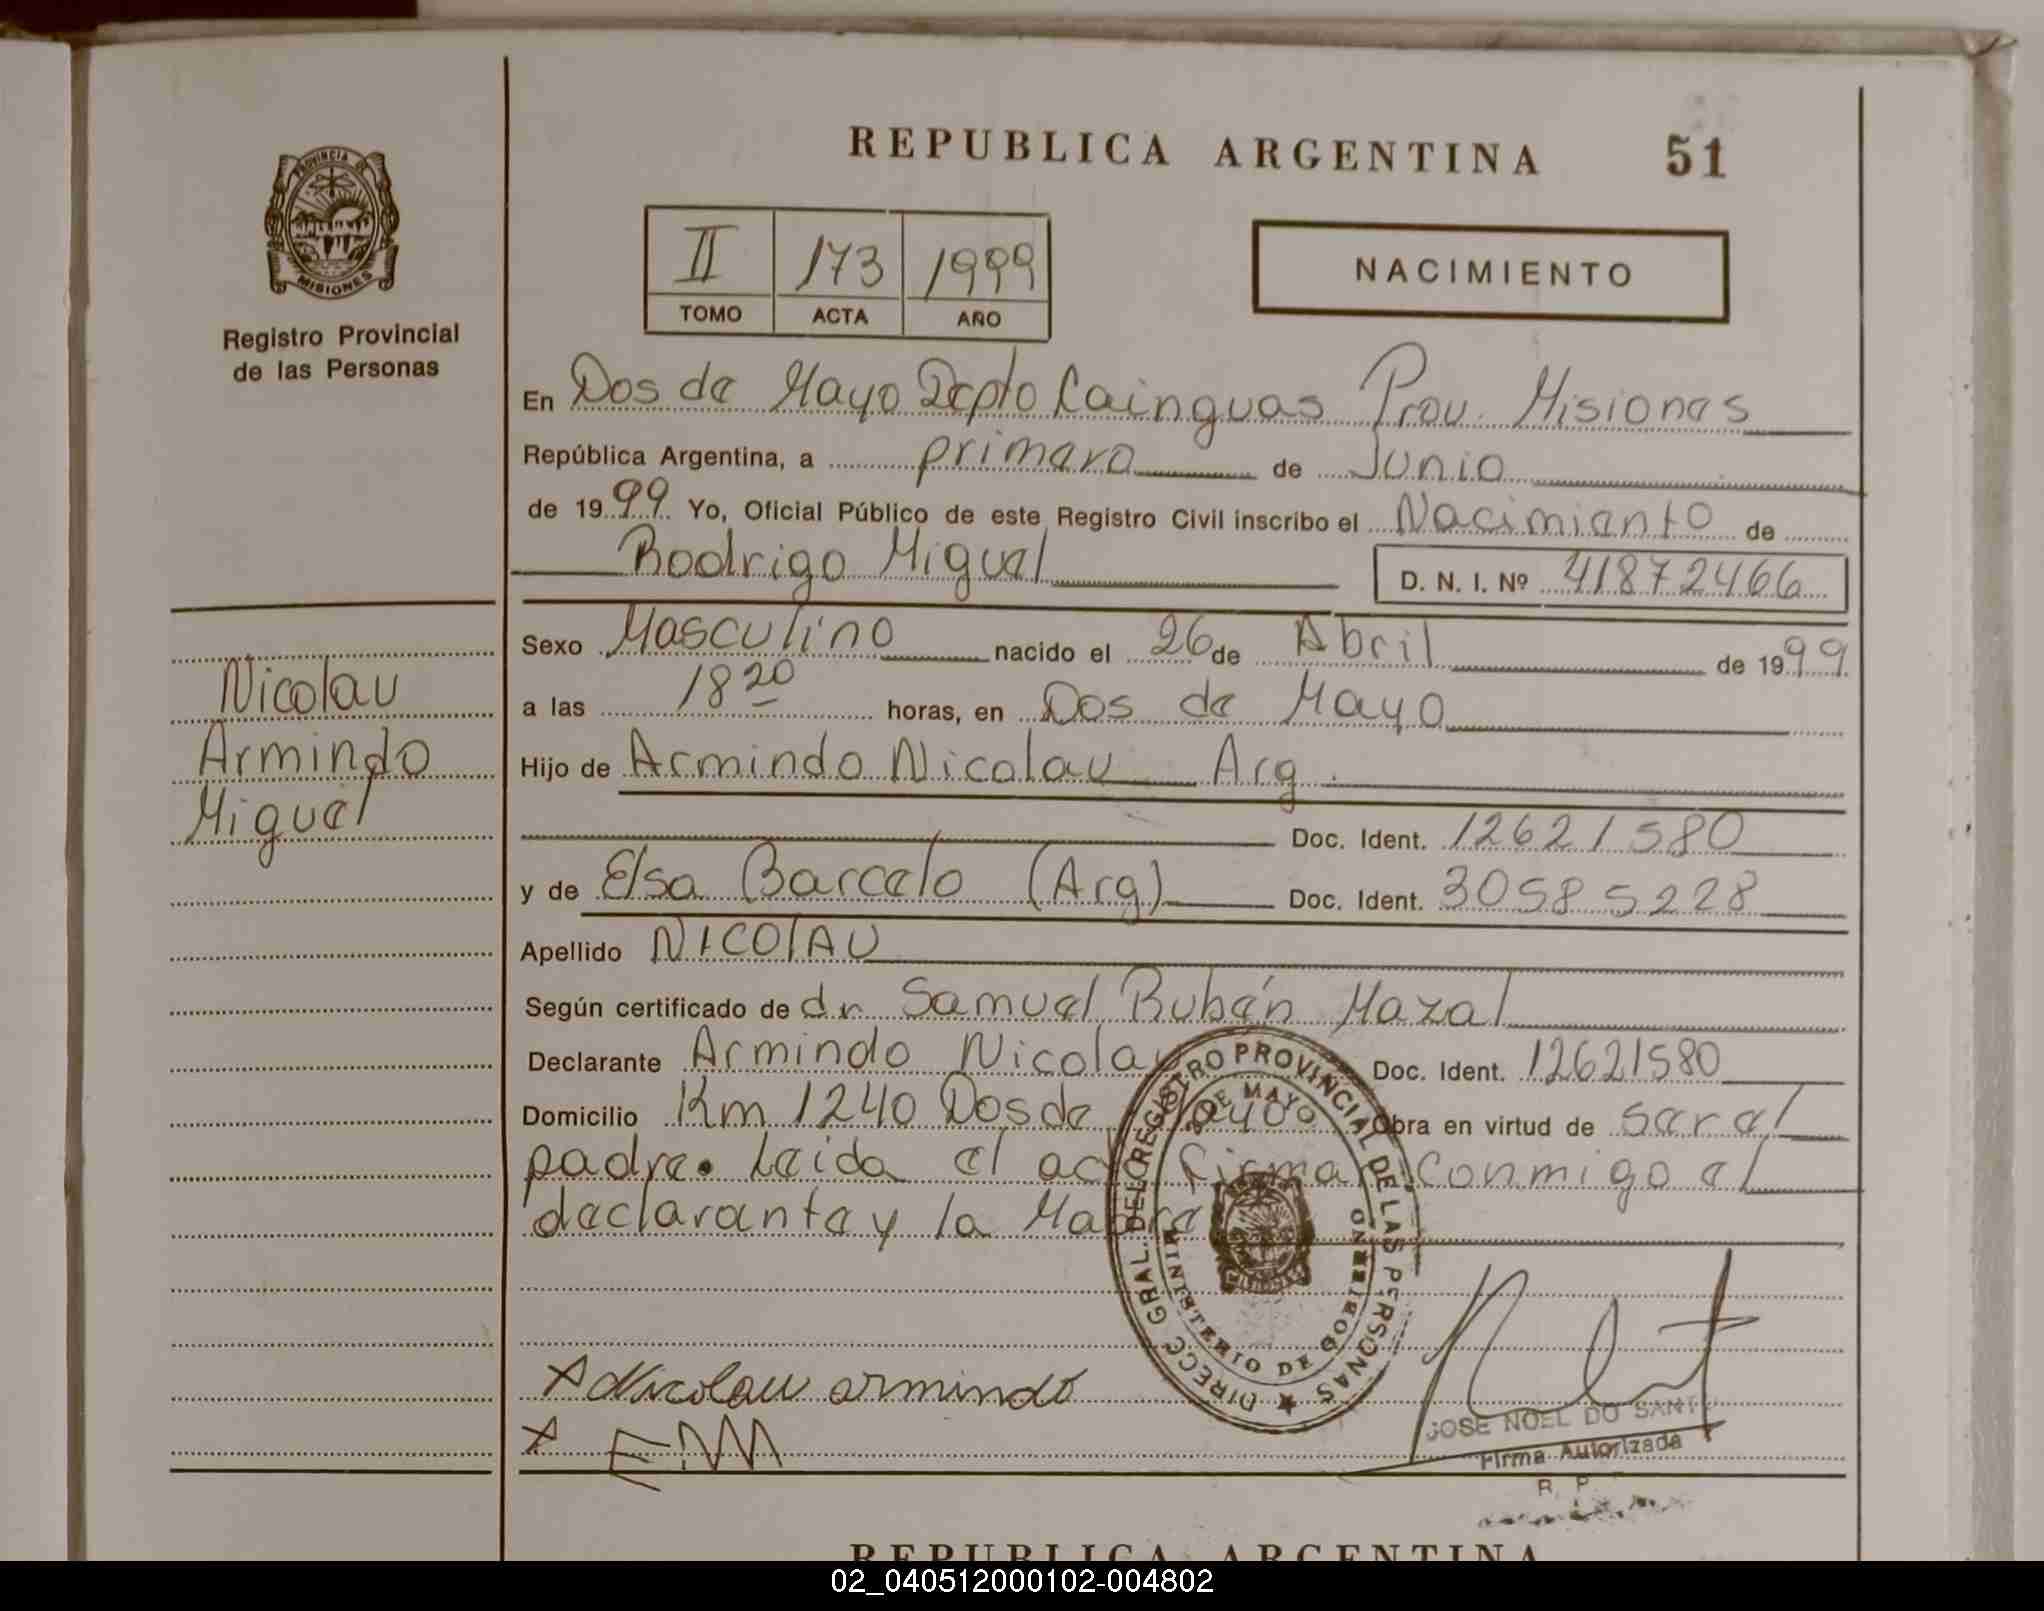 REPUBLICA ARGENTINA 51
PROVINCIA DE
MISIONES
Registro Provincial
de las Personas
II 173 1999
TOMO ACTA AÑO
NACIMIENTO
En Dos de Mayo Depto Cainguas Prov. Misiones
República Argentina, a primero de Junio
de 1999 Yo, Oficial Público de este Registro Civil inscribo el Nacimiento de
Rodrigo Miguel D. N. I. Nº 41872466
Sexo Masculino nacido el 26 de Abril de 1999
a las 18 20 horas, en Dos de Mayo
Hijo de Armindo Nicolau Arg.
Doc. Ident. 12621580
y de Elsa Barcelo (Arg) Doc. Ident. 30585228
Apellido NICOLAU
Según certificado de dr Samuel Rubén Mazal
Declarante Armindo Nicolau Doc. Ident. 12621580
Domicilio Km 1240 Dos de Mayo Obra en virtud de ser el
padre. Leida el acta firman conmigo el
declarante y la Madre
Nicolau
Armindo
Miguel
DIRECC GRAL. DEL REGISTRO PROVINCIAL DE LAS PERSONAS
2 DE MAYO
MINISTERIO DE GOBIERNO
X Nicolau armindo
X
JOSE NOEL DO SANT
Firma Autorizada
R. P.
REPUBLICA ARGENTINA
02_040512000102-004802